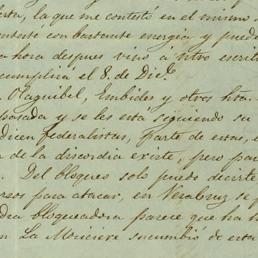 esta, la que me contestó en el mismo
mente con bastante energia y puede
a hora despues vino á ntro escrito
cumplirá el 8. de Dice
Olaguibel, Embides y otros hta.
pasada y se les esta siguiendo su
dicen federalistas, parte de estas, e
n de la discordia existe, pero par
. Del bloqueo solo puedo decirte
rsos para atacar, en Veracruz se
dra bloqueadora parece que ha
n La sucumbio de esta